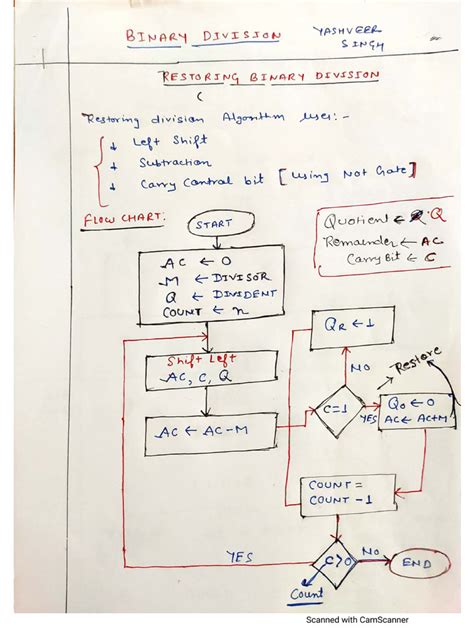 BINARY DIVISION
YASHVEER
SINGH
RESTORING BINARY DIVISION
(
Restoring division Algorithm uses:-
↓ Left Shift
↓ Subtraction
↓ Carry Control bit [using Not Gate]
FLOW CHART:
START
Quotient ← Q
Remainder ← AC
Carry Bit ← C
AC ← 0
M ← DIVISOR
Q ← DIVIDENT
COUNT ← n
QR ← 1
Shift Left
AC, C, Q
NO
Restore
AC ← AC-M
C=1
YES
Q0 ← 0
AC ← AC+M
COUNT =
COUNT -1
YES
C>0
NO
END
Count
Scanned with CamScanner